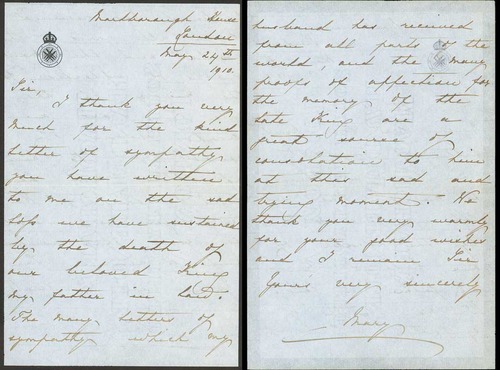 Marlborough House
London
May 24th
1910.
Sir,
I thank you very
much for the kind
letter of sympathy
you have written
to me on the sad
loss we have sustained
by the death of
our beloved King
my father in law.
The many letters of
sympathy which my
husband has received
from all parts of the
world, and the many
proofs of affection for
the memory of the
late King are a
great source of
consolation to him
at this sad and
trying moment. We
thank you very warmly
for your good wishes
and I remain Sir
Yours very sincerely
Mary